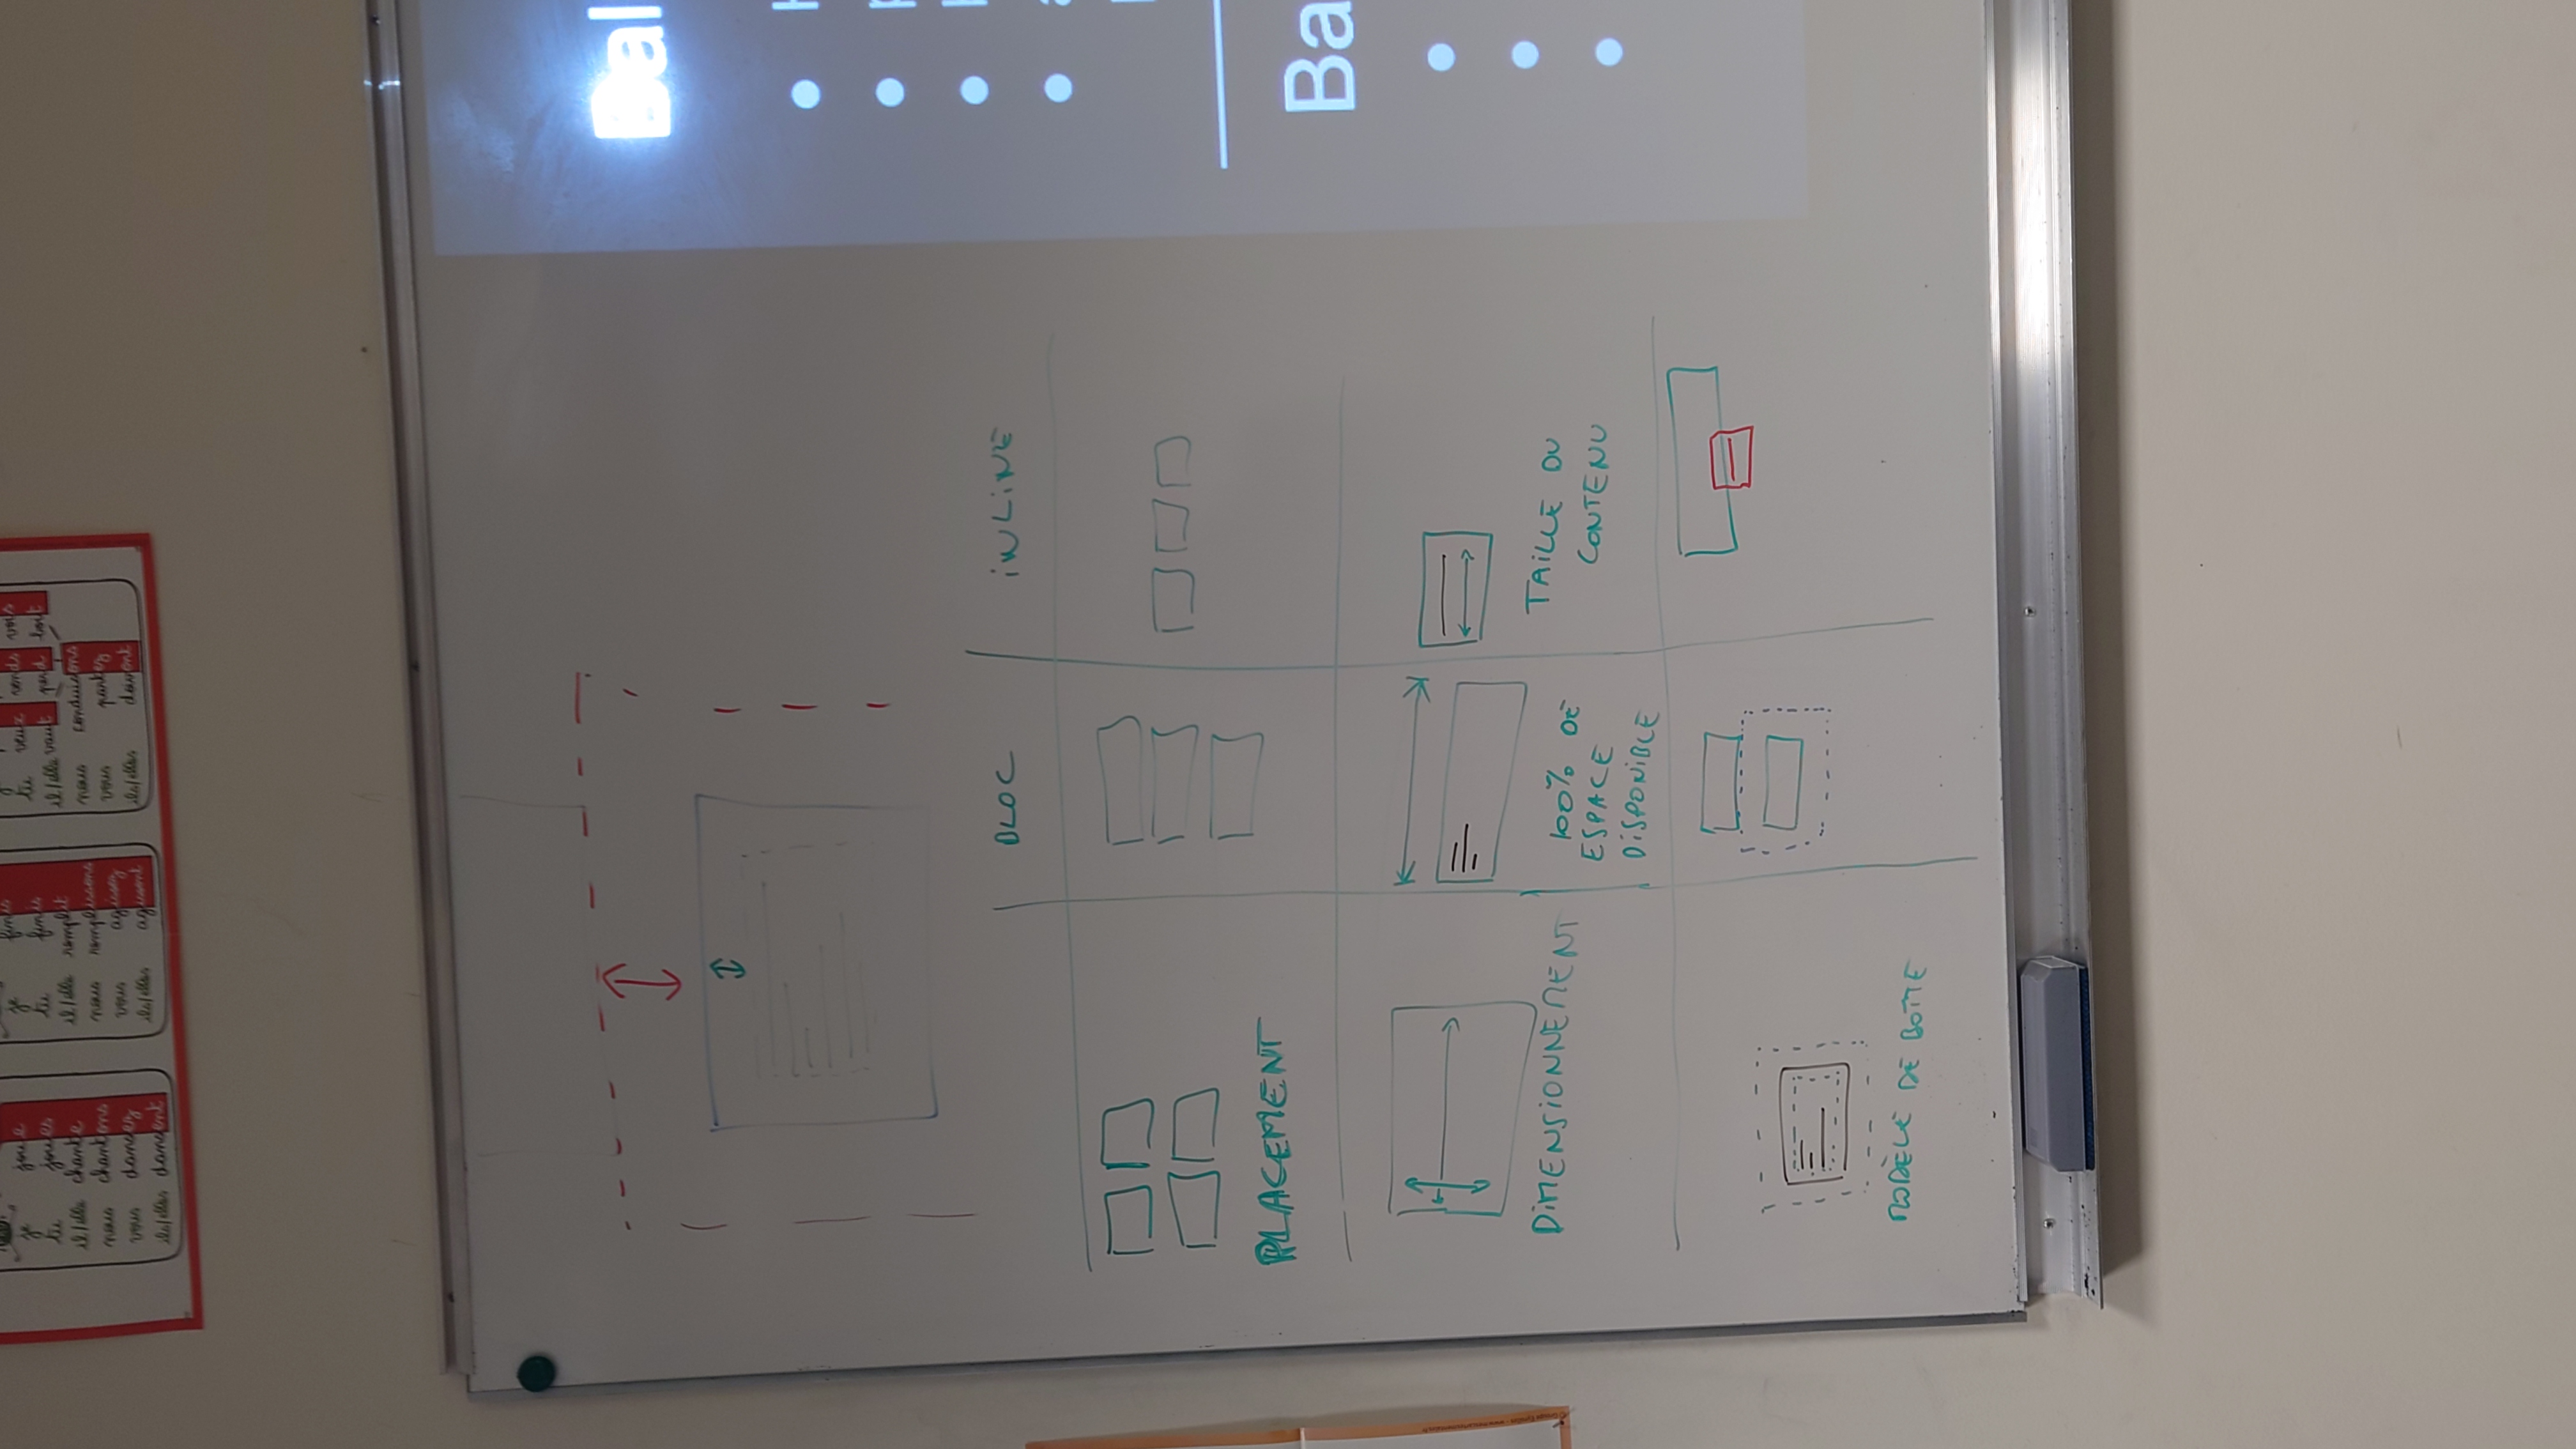 je joue
tu joues
il/elle chante
nous chantons
vous dansez
ils/elles dansent
je finis
tu finis
il/elle remplit
nous remplissons
vous agissez
ils/elles agissent
tu veux vends vois
il/elle vaut perd boit
nous conduisons
vous partez
ils/elles doivent
Bal
BLOC
INLINE
PLACEMENT
Ba
DIMENSIONNEMENT
100% DE
ESPACE
DISPONIBLE
TAILLE DU
CONTENU
MODÈLE DE BOÎTE